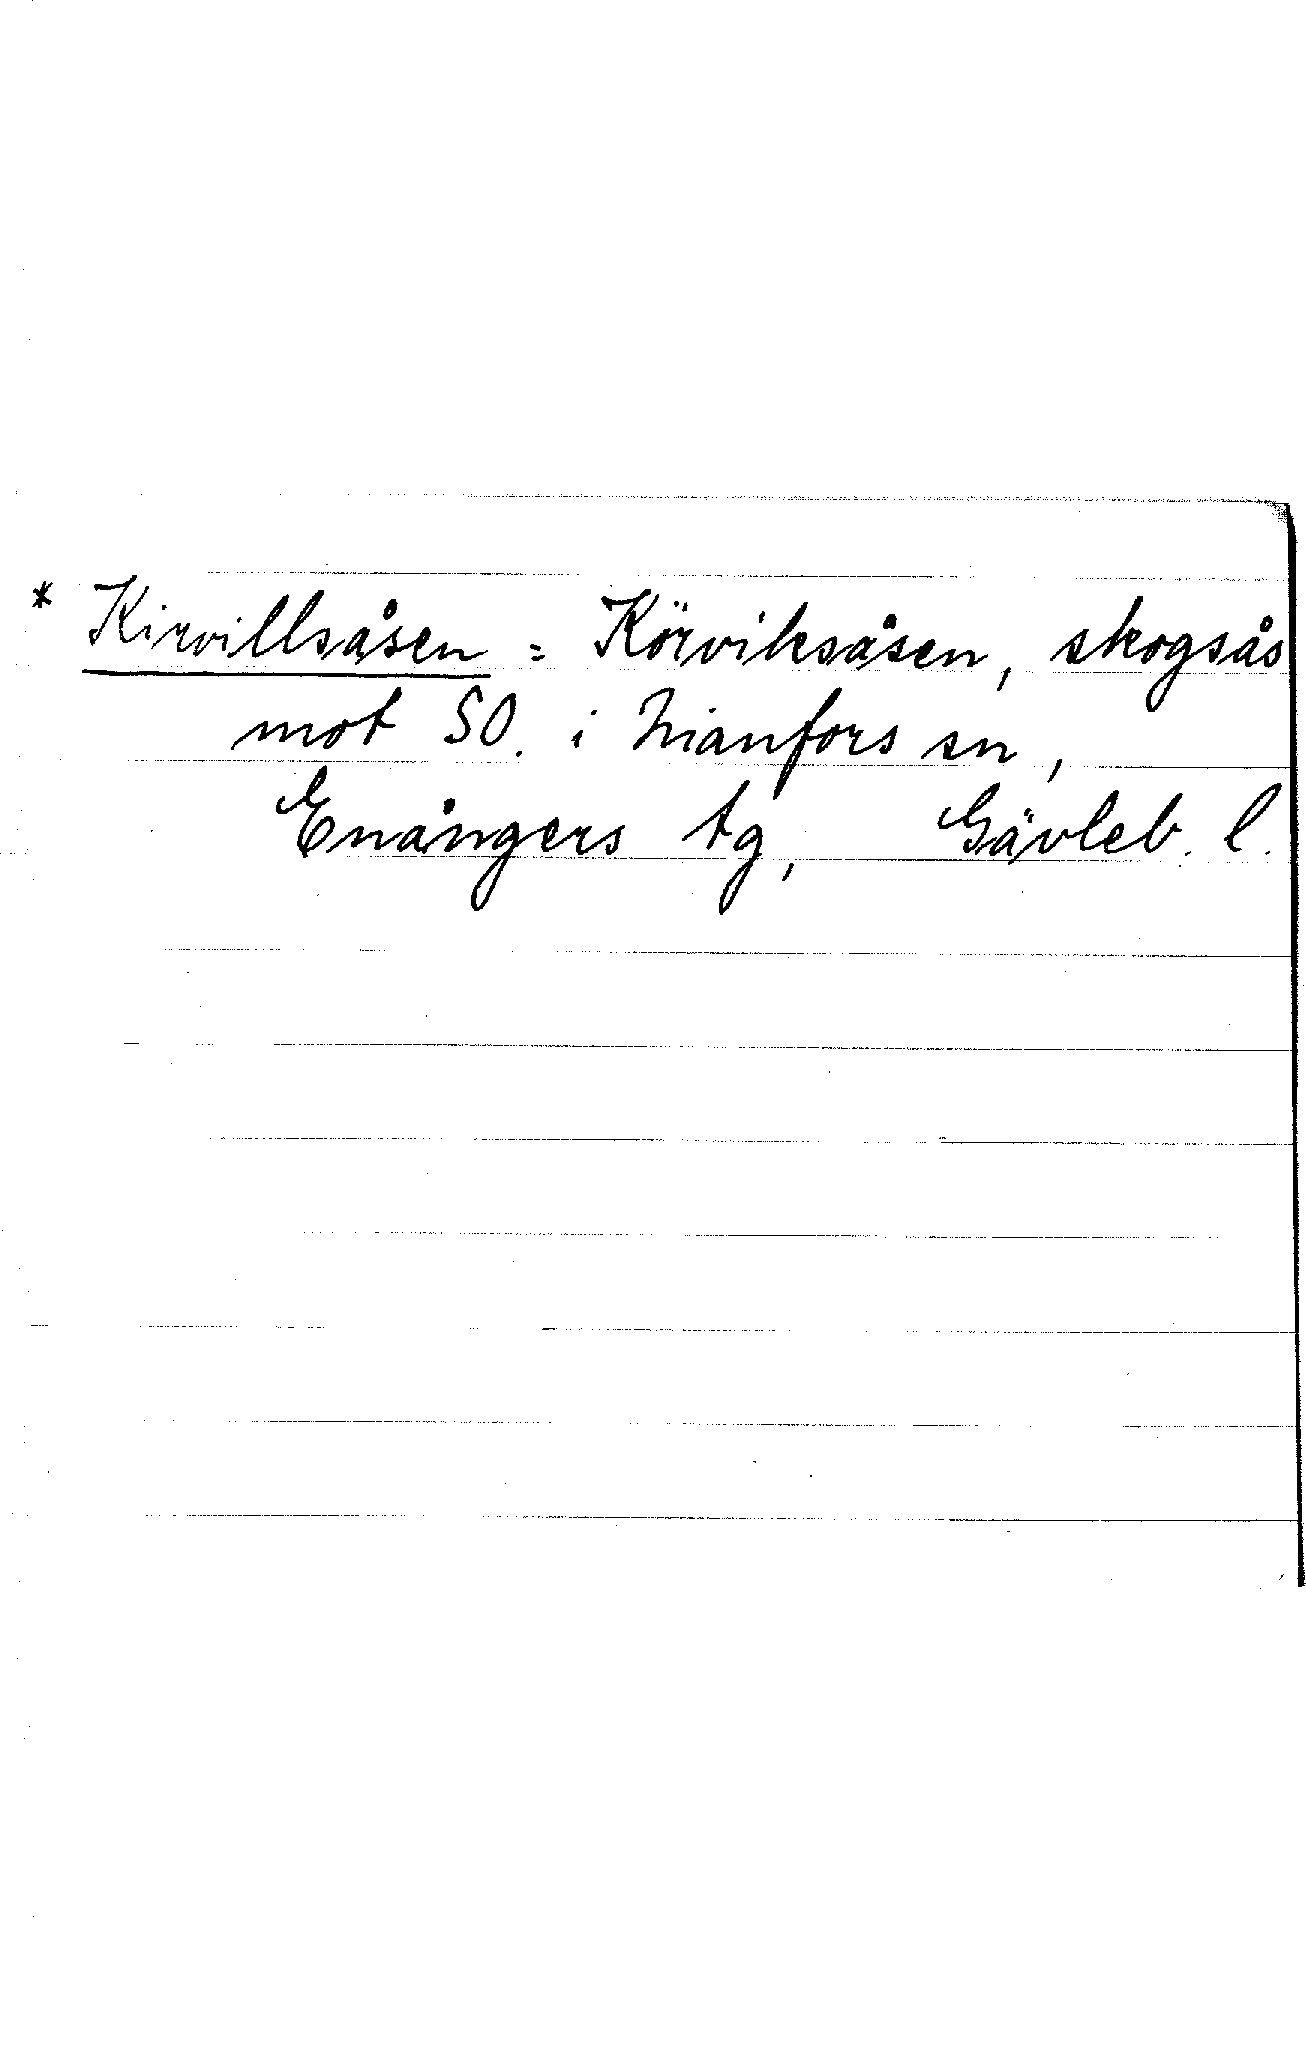 * Kirvillsåsen = Körviksåsen, skogsås
mot SO. i Nianfors sn,
Enångers tg, Gävleb. l.